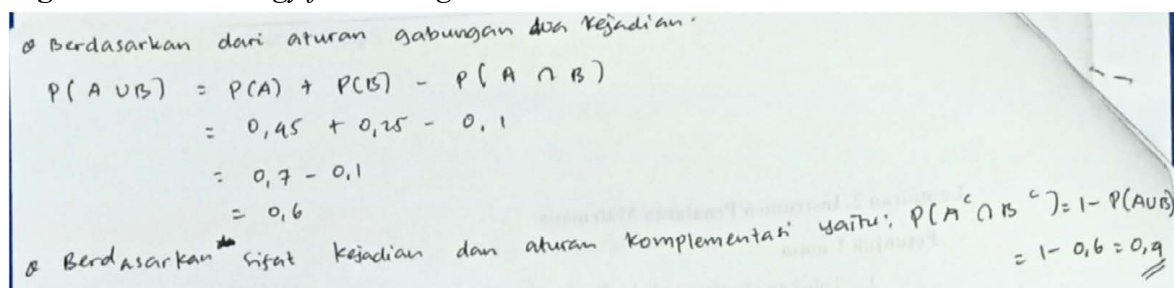 Berdasarkan dari aturan gabungan dua kejadian.
P(A ∪ B) = P(A) + P(B) - P(A ∩ B)
= 0,45 + 0,25 - 0,1
= 0,7 - 0,1
= 0,6
Berdasarkan sifat kejadian dan aturan komplementasi yaitu: P(A^c ∩ B^c) = 1 - P(A∪B)
= 1 - 0,6 = 0,4